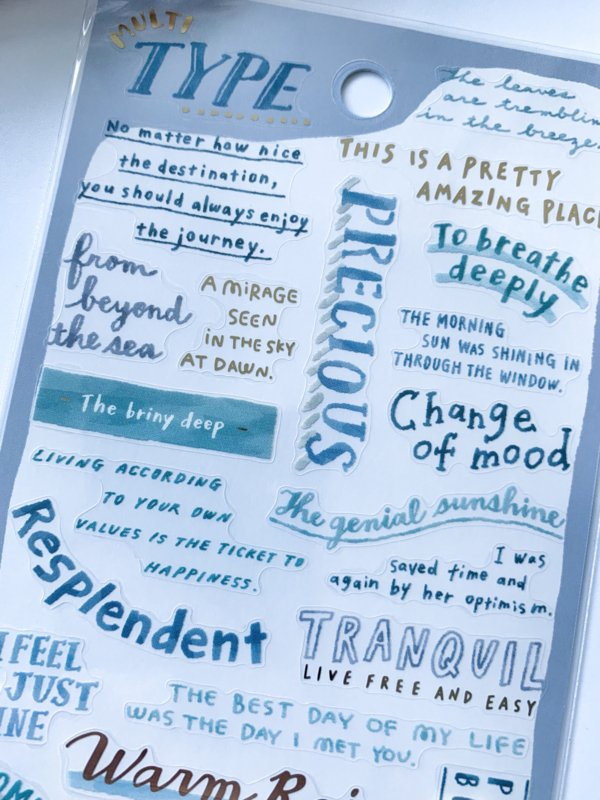 MULTI
TYPE
The leaves
are
in the breeze.
No matter how nice
the destination,
you should always enjoy
the journey.
THIS IS A PRETTY
AMAZING
PRECIOUS
To breathe
deeply
from
beyond
the sea
A MiRAGE
SEEN
iN THE SKY
AT DAWN.
THE MORNING
SUN WAS SHINING IN
THROUGH THE WINDOW.
The briny deep
Change
of mood
LIVING ACCORDING
TO YOUR OWN
VALUES IS THE TICKET TO
HAPPINESS.
The genial sunshine
I was
saved time and
again by her optimism.
Resplendent
TRANQUIL
LIVE FREE AND EASY
I FEEL
JUST
THE BEST DAY OF MY LIFE
WAS THE DAY I MET YOU.
Warm